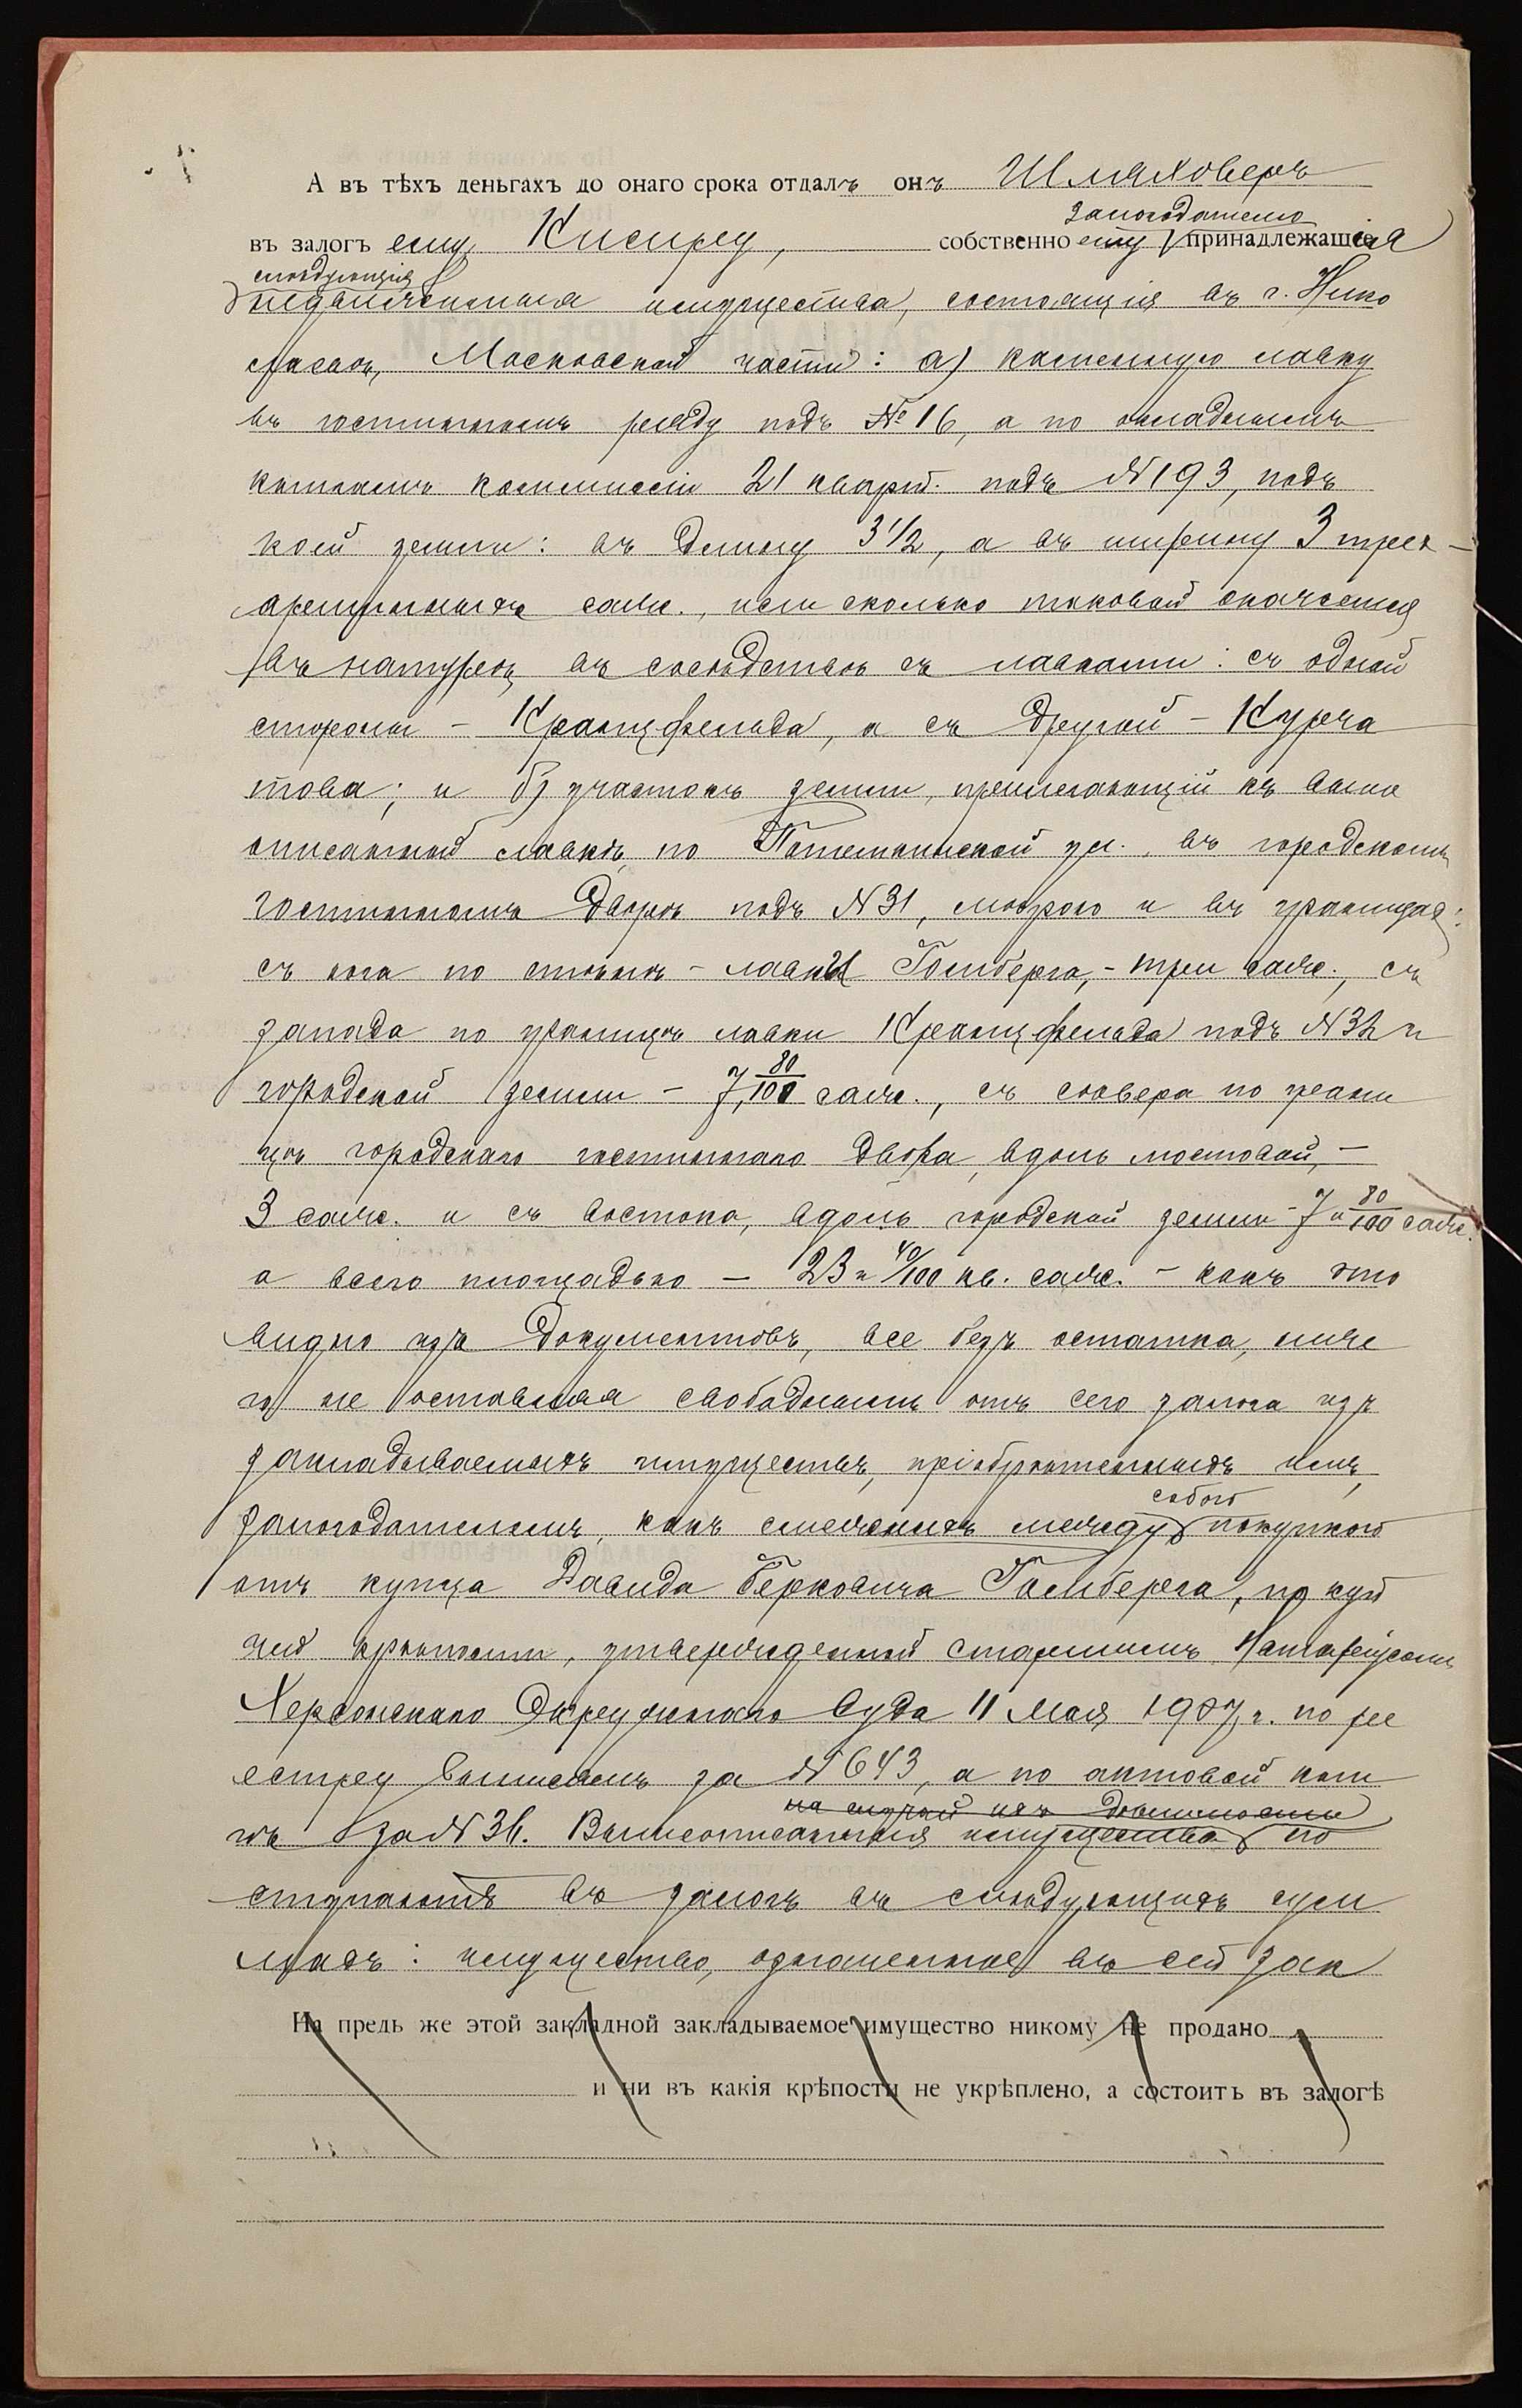 А въ тѣхъ деньгахъ до онаго срока отдалъ онъ Шмуковеръ
залогодателю
въ залогъ ему, Кисину, собственно ему принадлежащія
слѣдующія
недвижимыя имущества, состоящія въ г. Нико
лаевѣ, Московской части: а) каменную лавку
въ гостинномъ ряду подъ № 16, а по окладнымъ
книгамъ коммиссіи 21 кварт. подъ № 193, подъ
коей земли: въ длину 3 1/2, а въ ширину 3 трех-
аршинныхъ саж., или сколько таковой окажется
въ натурѣ, въ сосѣдствѣ съ лавками: съ одной
стороны - Кранцфельда, а съ другой - Курча
това; и б) участокъ земли, прилегающій къ выше
описанной лавкѣ, по Потемкинской ул., въ городскомъ
гостинномъ дворѣ подъ № 31, мѣрою и въ границах:
съ юга по стѣнѣ - лавки Гомберга, - три саж., съ
запада по границѣ лавки Кранцфельда подъ № 32 и
городской земли - 7, 80/100 саж., съ сѣвера по грани
цѣ городского гостиннаго двора, вдоль мостовой, -
3 саж. и съ востока, вдоль городской земли - 7 и 80/100 саж.
а всего площадью - 23 и 40/100 кв. саж. - какъ это
видно изъ документовъ, все безъ остатка, ниче
го не оставляя свободнымъ отъ сего залога изъ
закладываемыхъ имуществъ, пріобрѣтенныхъ имъ,
собою
залогодателемъ, какъ смежныхъ между покупкою
отъ купца Давида Берковича Гомберга, по куп
чей крѣпости, утвержденной Старшимъ Нотаріусомъ
Херсонскаго Окружнаго Суда 11 Мая 1907 г. по ре
естру за № 643, а по актовой кни
на случай ихъ
гѣ за № 36. Вышеописанныя имущества по
ступаютъ въ залогъ въ слѣдующихъ сум
махъ: имущество, означенное въ сей зак
На предь же этой закладной закладываемое имущество никому не продано
и ни въ какія крѣпости не укрѣплено, а состоитъ въ залогѣ